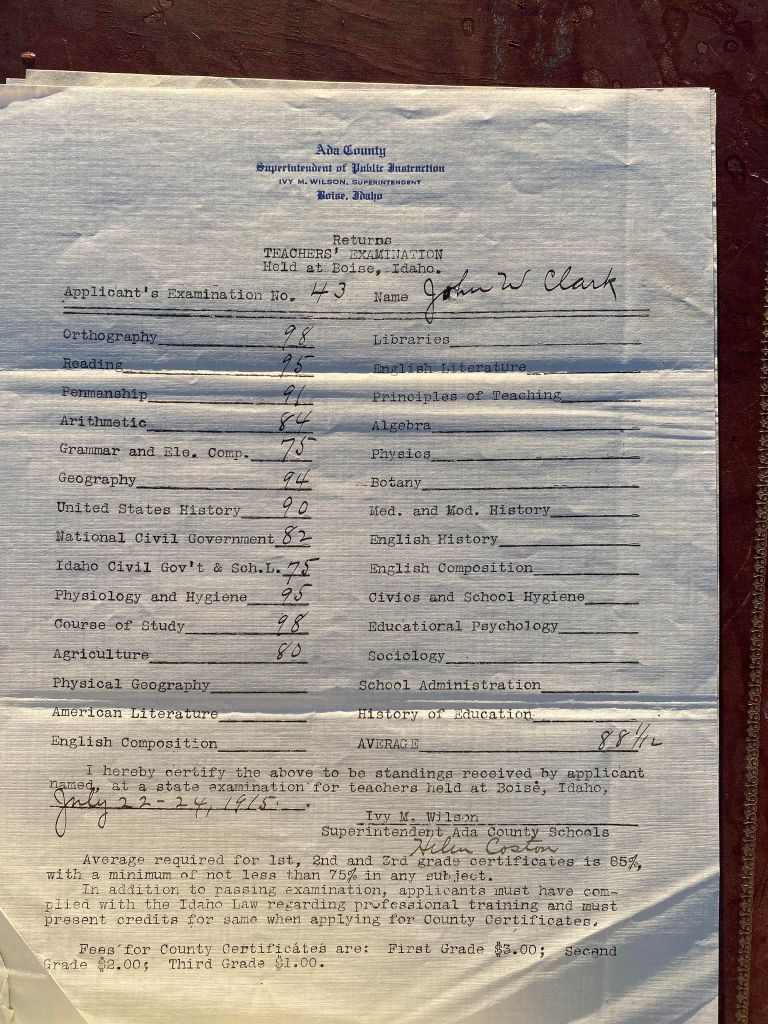 Ada County
Superintendent of Public Instruction
IVY M. WILSON, SUPERINTENDENT
Boise, Idaho
Returns
TEACHERS' EXAMINATION
Held at Boise, Idaho.
Applicant's Examination No. 43 Name John W Clark
Orthography 98 Libraries
Reading 95 English Literature
Penmanship 91 Principles of Teaching
Arithmetic 84 Algebra
Grammar and Ele. Comp. 75 Physics
Geography 94 Botany
United States History 90 Med. and Mod. History
National Civil Government 82 English History
Idaho Civil Gov't & Sch.L. 75 English Composition
Physiology and Hygiene 95 Civics and School Hygiene
Course of Study 98 Educational Psychology
Agriculture 80 Sociology
Physical Geography School Administration
American Literature History of Education
English Composition AVERAGE 88 1/12
I hereby certify the above to be standings received by applicant
named, at a state examination for teachers held at Boise, Idaho,
July 22-24, 1915.
Ivy M. Wilson
Superintendent Ada County Schools
Helen Coston
Average required for 1st, 2nd and 3rd grade certificates is 85%,
with a minimum of not less than 75% in any subject.
In addition to passing examination, applicants must have com-
plied with the Idaho Law regarding professional training and must
present credits for same when applying for County Certificates.
Fees for County Certificates are: First Grade $3.00; Second
Grade $2.00; Third Grade $1.00.